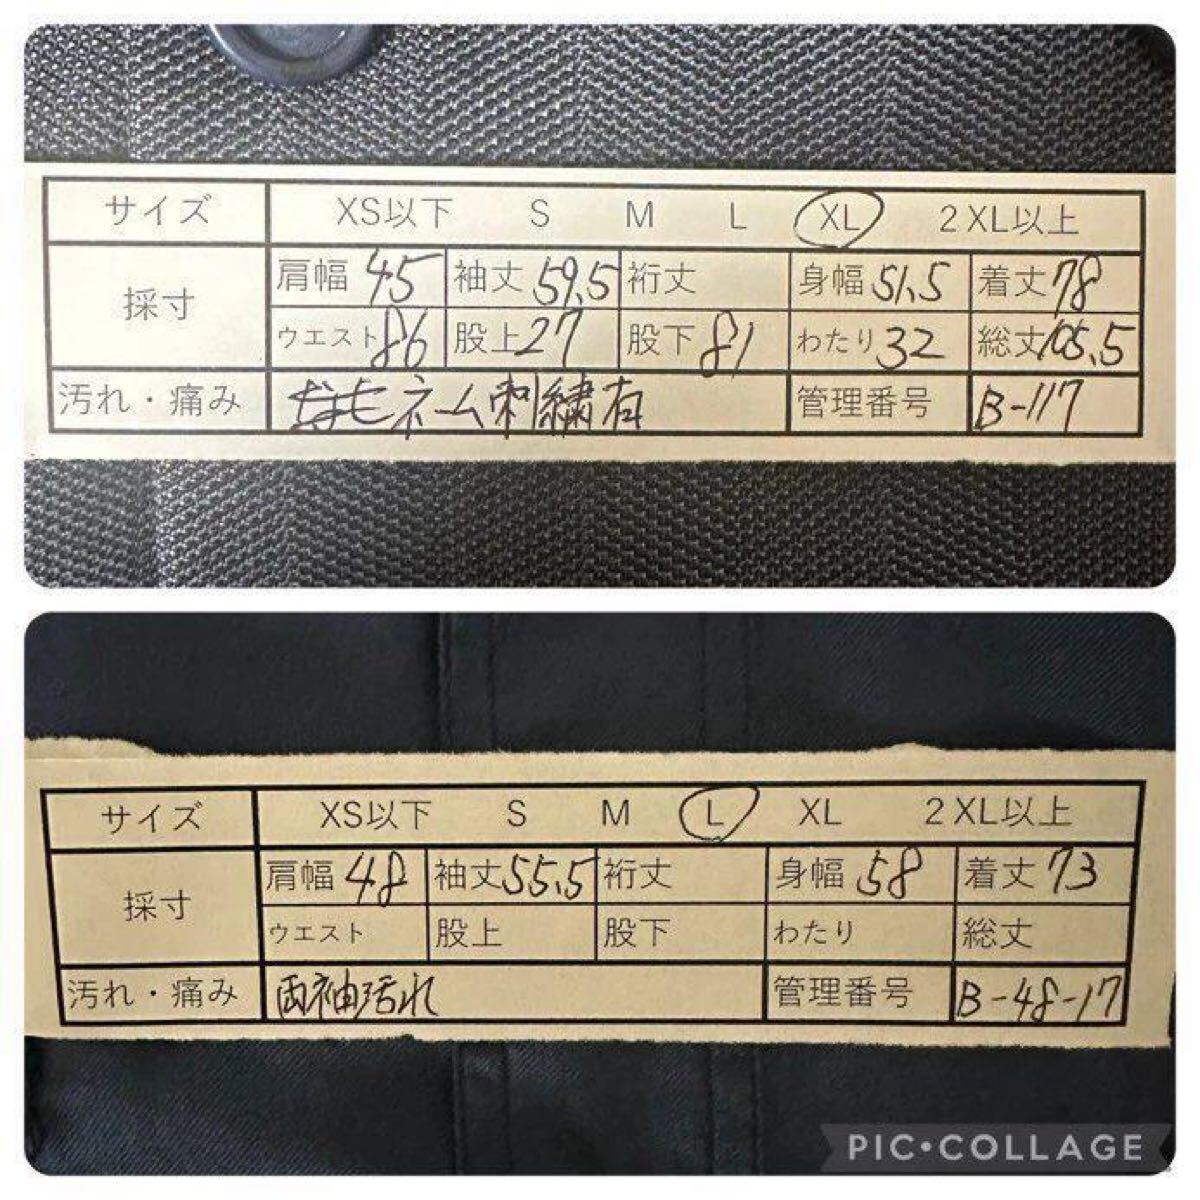 サイズ XS以下 S M L XL 2XL以上
採寸 肩幅 45 袖丈 59.5 裄丈 身幅 51.5 着丈 78
ウエスト 86 股上 27 股下 81 わたり 32 総丈 105.5
汚れ・痛み ネーム刺繍有 管理番号 B-117
サイズ XS以下 S M L XL 2XL以上
採寸 肩幅 48 袖丈 55.5 裄丈 身幅 58 着丈 73
ウエスト 股上 股下 わたり 総丈
汚れ・痛み 両袖汚れ 管理番号 B-48-17
PIC•COLLAGE